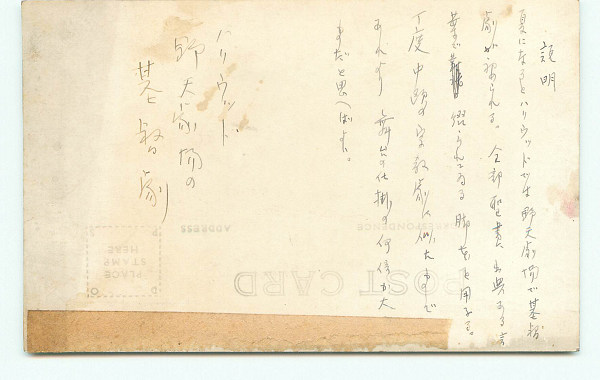 説明
夏になるとハリウッドでは野天劇場で基督
劇が演られる。全部聖書出典ある言
葉で綴られてゐる脚本を用ゐる。
丁度中欧の宗教劇に似たもので
あれより舞台の仕掛の何倍か大
きだと思へばよい。
ハリウッド
野天劇場の
基督劇
POST CARD
CORRESPONDENCE
ADDRESS
PLACE
STAMP
HERE